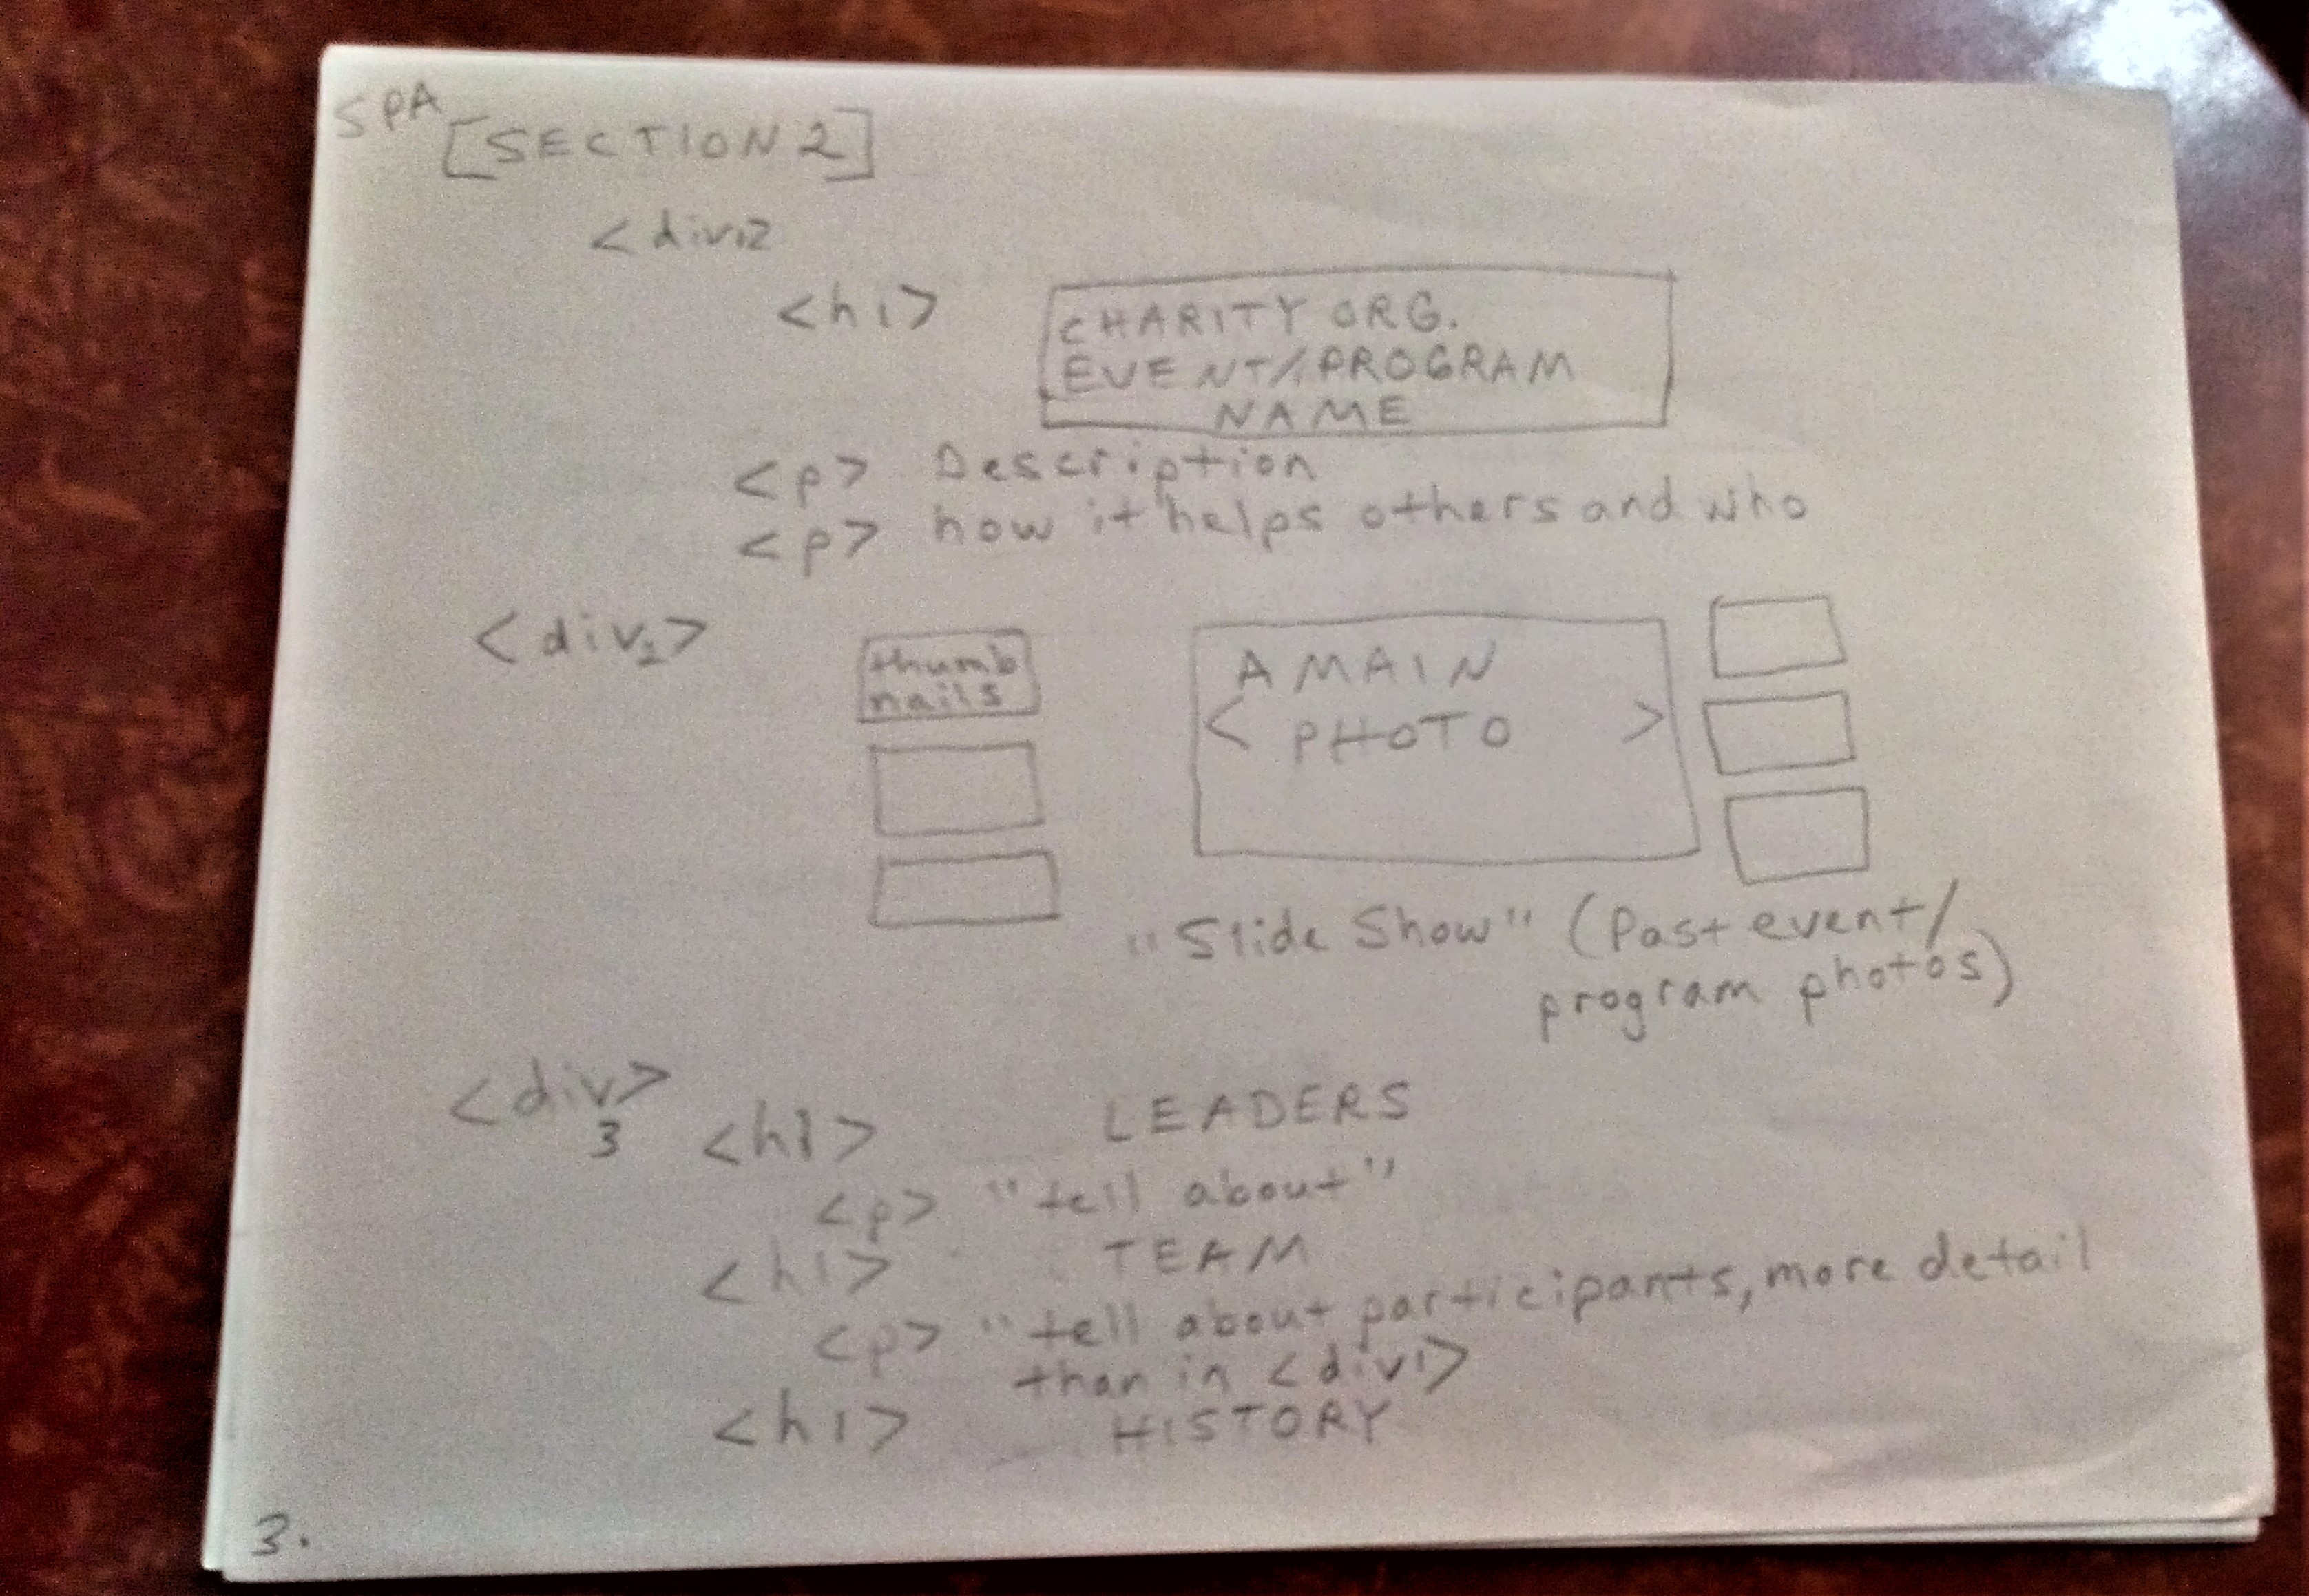 SPA
[SECTION 2]
<div12
<h1>
CHARITY ORG.
EVENT/PROGRAM
NAME
<p> Description
<p> how it helps others and who
<div2>
thumb
nails
A MAIN
< PHOTO >
"Slide Show" (Past event/
program photos)
<div>
3
<h1> LEADERS
<p> "tell about"
<h1> TEAM
<p> "tell about participants, more detail
than in <div1>
<h1> HISTORY
3.